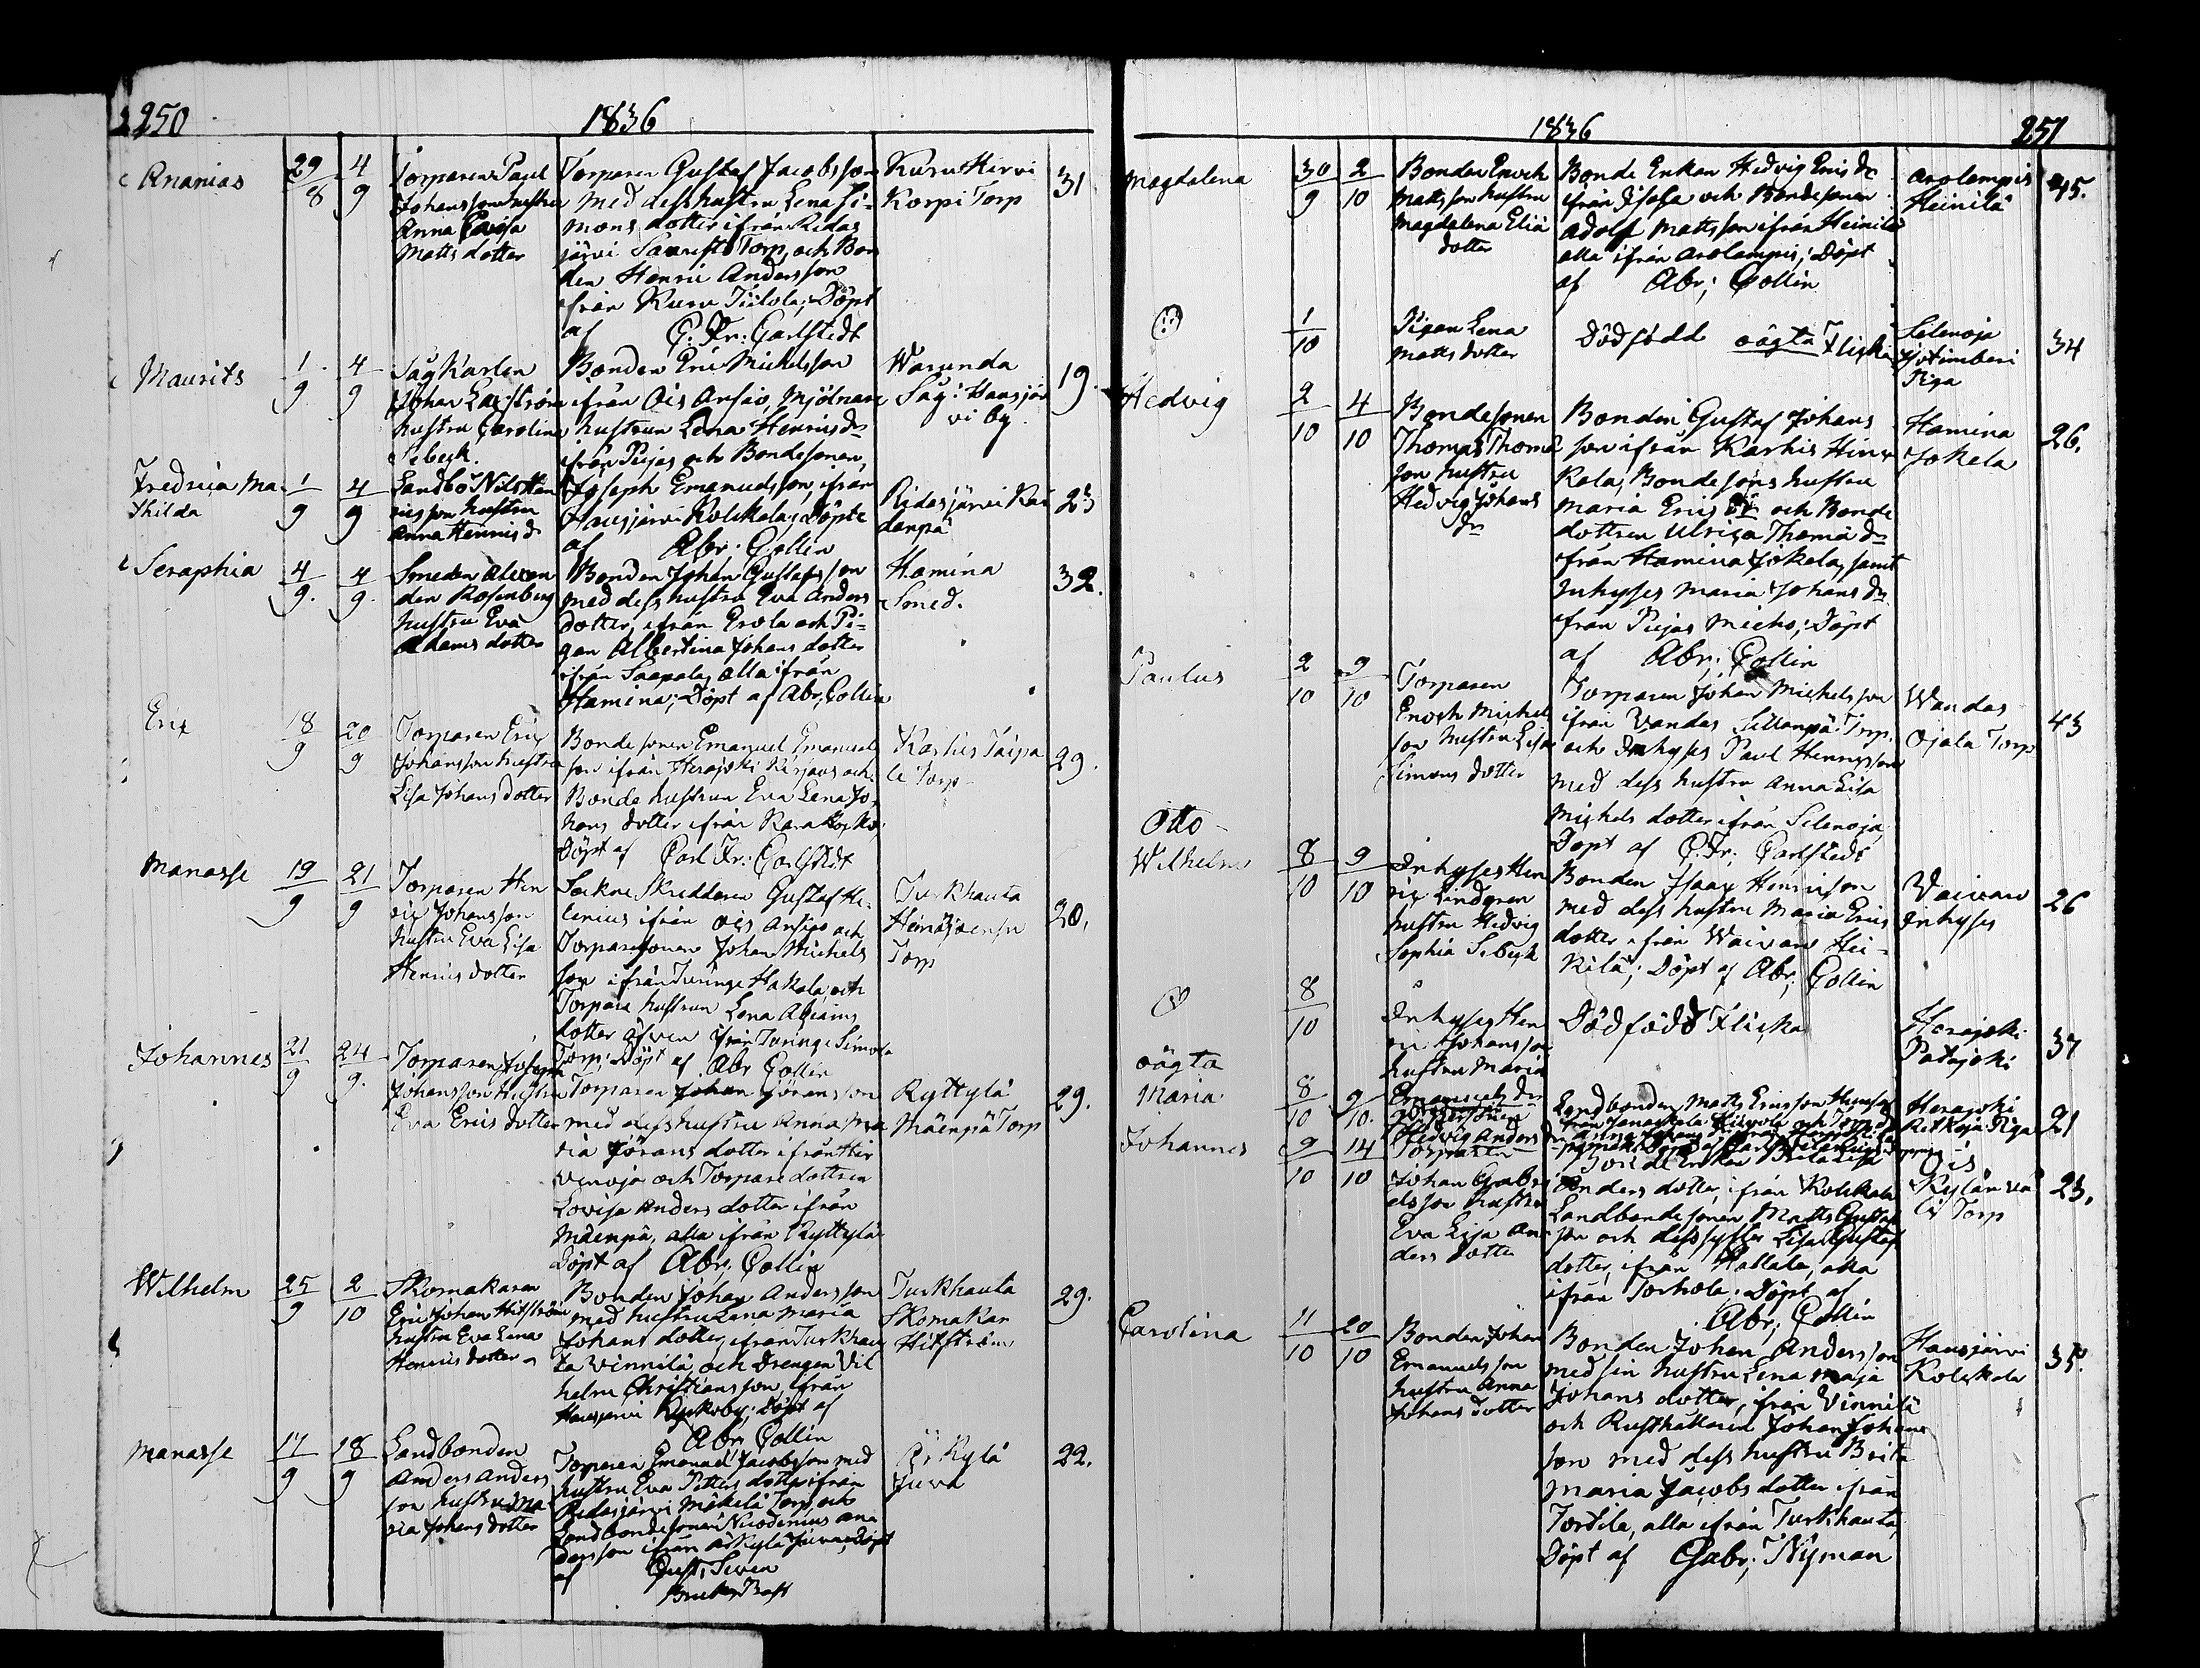 250
1836
Ananias
29/8
4/9
Torparen Paul
Johansson hustru
Anna Lovisa
Matts dotter
Torparen Gustaf Jacobsson
med dess hustru Lena Si-
mons dotter ifrån Ridas
järvi Torp, och Bon
den Henric Andersson
från Kuru Tiilola; Döpt
af C. Fr: Carlstedt
Kuru Hirvi
Korpi Torp
31
Maurits
1/9
4/9
Såg Karlen
Johan
hustru Carolina
Sebeck.
Bonden Eric Mickelsson
ifrån Ois Ansio, Mjölnare
hustrun Lena Henricsdr
ifrån Pujas och Bondesonen,
Joseph Emanuelsson, ifrån
Hausjärvi Kolckala; Döpte
af Abr: Collin
Warunda
Såg: Hausjär
vi by.
19.
Fredrica Ma-
thilda
1/9
4/9
Landbo Nils Hen
ricsson hustru
Anna Henricsd
Ridasjärvi Rau
danpä
23
Seraphia
4/9.
4/9.
Smeden Alexan
der Rosenberg
hustru Eva
Adams dotter
Bonden Johan Gustafsson
med dess hustru Eva Anders
dotter, ifrån Erola och Pi-
gan Albertina Johans dotter
ifrån Saapala, alla ifrån
Hamina; Döpt af Abr, Collin
Hamina
Smed.
32.
Eric
18/9
20/9
Torparen Eric
Johansson hustru
Lisa Johans dotter
Bonde sonen Emanuel Emanuel
son ifrån Herajoki Kirjaus och
Bonde hustrun Eva Lena Jo,
hans dotter ifrån
Döpt af Carl Fr: Carlstedt
Karhis Taipa
le Torp
29.
Manasse
19/9
21/9
Torparen Hen
ric Johansson
hustru Eva Lisa
Henrics dotter
Sockne Skreddaren Gustaf He-
lenius ifrån Ois Ansio och
Torparesonen Johan Michels
son ifrån Turinge Hakala, och
Torpare hustrun Lena Abrams
dotter äfven ifrån Turinge Simola
Torp; Döpt af Abr Collin
Turkhauta
Torp
20.
Johannes
21/9
24/9.
Torparen Joseph
Johansson hustru
Eva Erics dotter
Torparen Johan Jöransson
med dess hustru Anna Ma
ria Jörans dotter ifrån Hir
venoja och Torpare dottren
Lovisa Anders dotter ifrån
Mäenpä, alla ifrån Ryttylä
Döpt af Abr, Collin
Ryttylä
Mäenpä Torp
29.
Wilhelm
25/9
2/10
Skomakaren
Eric Johan Hitström
hustru Eva Lena
Henrics dotter
Bonden Johan Andersson
med hustru Lena Maria
Johans dotter, ifrån Turkhau
ta Vinnilä, och Drengen Vil
helm Christiansson, ifrån
Hausjärvi Kyrkoby; Döpt af
Abr, Collin
Turkhauta
Skomakar
Hitström
29.
Manasse
17/9
18/9
Landbonden
Anders Anders
son hustru Ma
ria Johans dotter
Torparen Emanuel Jacobsson med
hustru Eva Petters dotter ifrån
Ridasjärvi Mäkelä Torp, och
Landbondesonen Nicodemus An
dersson ifrån Juva, Döpt
af Gust, Siren
Kylä
Juva
22.
1836
251
Magdalena
30/9
2/10
Bonden Enoch
Mattsson hustru
Magdalena Eliä
dotter
Bonde Enkan Hedvig Erics dr
ifrån och Bondesonen
Adolf Mattsson ifrån Heinilä
alla ifrån Arolampis; Döpt
af Abr; Collin
Arolampis
Heinilä
45.
1/10
Pigan Lena
Matts dotter
Dödfödd oägta Flicka
Selenoja
Piga
34
Hedvig
2/10
4/10
Bondesonen
Thomas Thomä
son hustru
Hedvig Johans
dr
Bonden Gustaf Johans
son ifrån Karhis Hinx
kala, Bonde sons hustru
Maria Erics dr och Bonde
dottren Ulrica Thomä dr
ifrån Hamina Jokela, samt
Inhyses Maria Johans dr
från Pujas Micko; Döpt
af Abr; Collin
Hamina
Jokela
26.
Paulus
2/10
9/10
Torparen
Enoch Michel
son hustru Lisa
Simons dotter
Torparen Johan Michelsson
ifrån Vandas Sillanpä Torp.
och Inhyses Paul Henricsson
med dess hustru Anna Lisa
Michels dotter ifrån Selenoja,
Döpt af C. Fr; Carlstedt
Wandas
Ojala Torp
43
Otto
Wilhelm
8/10
9/10
Inhyses Hen
ric Lindgren
hustru Hedvig
Sophia Sebeck
Bonden Isaac Henricsson
med dess hustru Maria Erics
dotter ifrån Waivaw Hei-
kilä; Döpt af Abr; Collin
Waivaw
Inhyses
26
8/10
Inhyses Hen
ric Johansson
hustru Maria
Emanuels dr
Dödfödd Flicka
Herajoki
Patajoki
37
oägta
Maria
8/10
9/10.
Hedvig Anders dr
Landbonden Matts Ericsson
Herajoki
Piga
21
Johannes
9/10
14/10
Torparen
Johan Gabri
elsson hustru
Eva Lisa An
ders dotter
Bonde Enkan Brita Lisa
Anders dotter, ifrån Kolckala
Landbonde sonen Matts Gustaf
son och dess syster Lisa Gustaf
dotter, ifrån Hallala, alla
ifrån Torhola. Döpt af
Abr; Collin
Ois
Torp
23.
Carolina
11/10
20/10
Bonden Johan
Emanuelsson
hustru Anna
Johans dotter
Bonden Johan Andersson
med sin hustru Lena Maja
Johans dotter, ifrån Vinnilä
och Rusthållaren Johan Johans
son med dess hustru Brita
Maria Jacobs dotter ifrån
Tortila, alla ifrån Turkhauta,
Döpt af Gabr; Nyman
Hausjärvi
Kolckala
35.